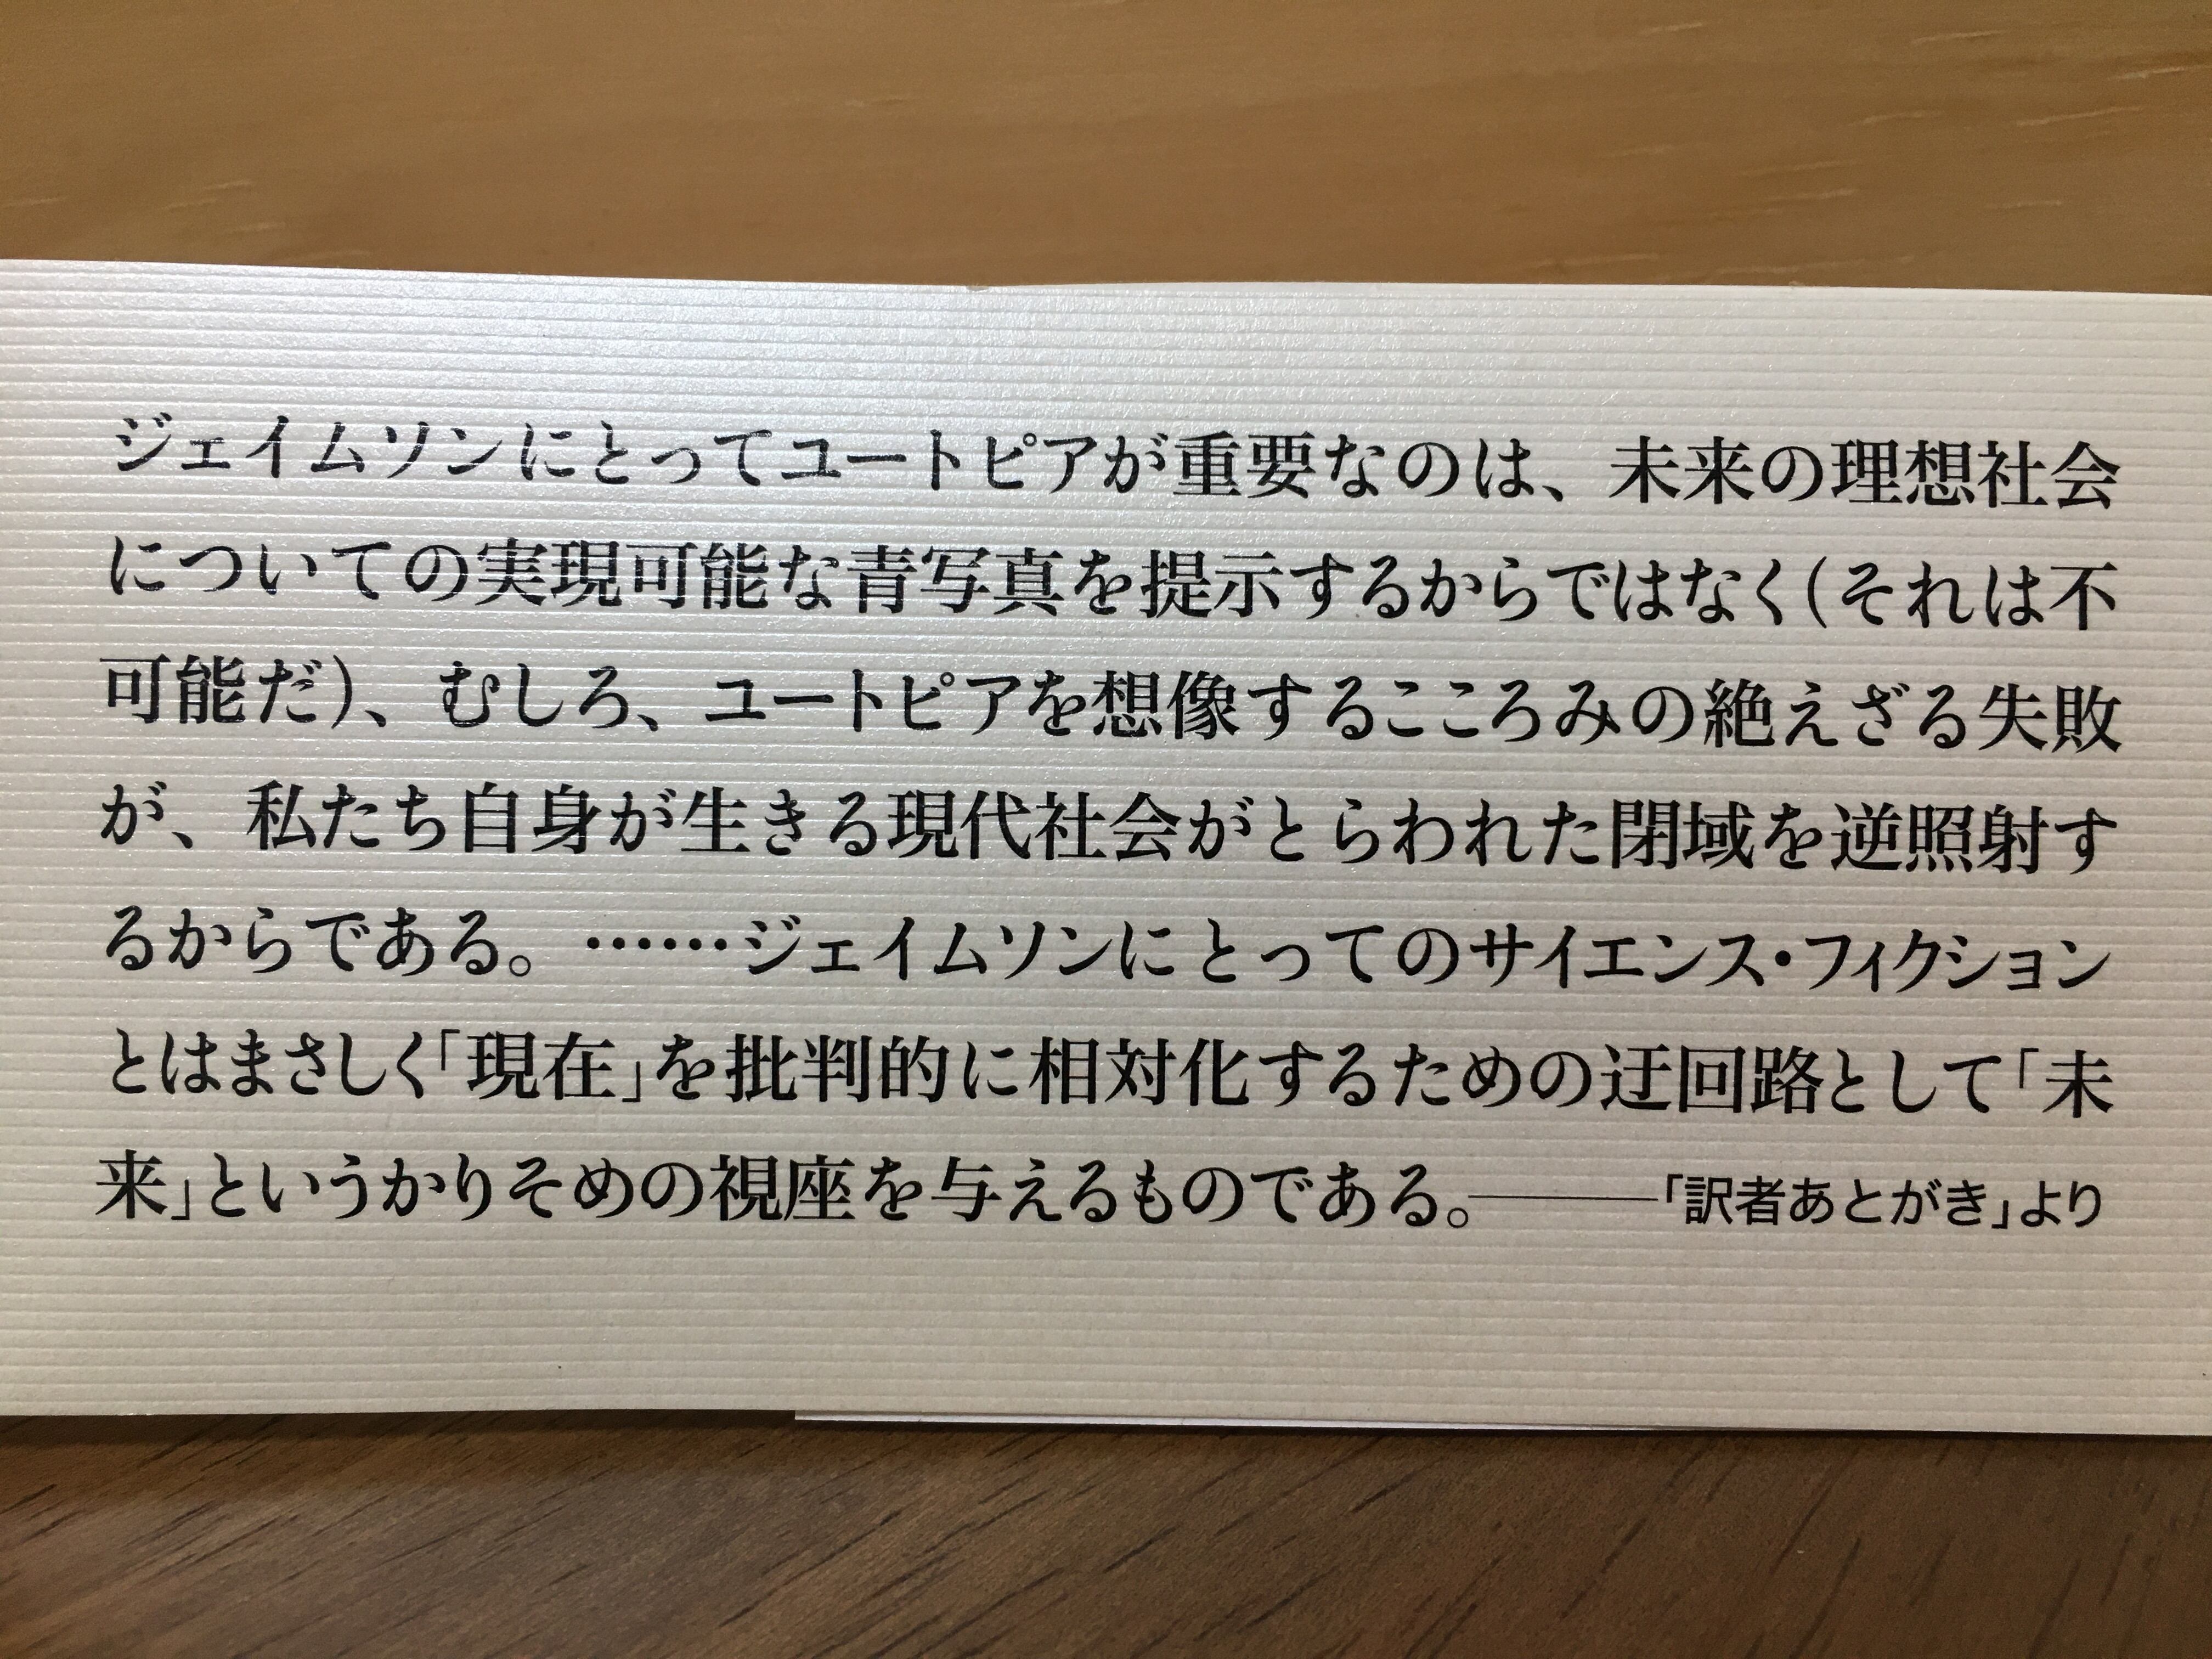 ジェイムソンにとってユートピアが重要なのは、未来の理想社会
についての実現可能な青写真を提示するからではなく(それは不
可能だ)、むしろ、ユートピアを想像するこころみの絶えざる失敗
が、私たち自身が生きる現代社会がとらわれた閉域を逆照射す
るからである。……ジェイムソンにとってのサイエンス・フィクション
とはまさしく「現在」を批判的に相対化するための迂回路として「未
来」というかりそめの視座を与えるものである。———「訳者あとがき」より